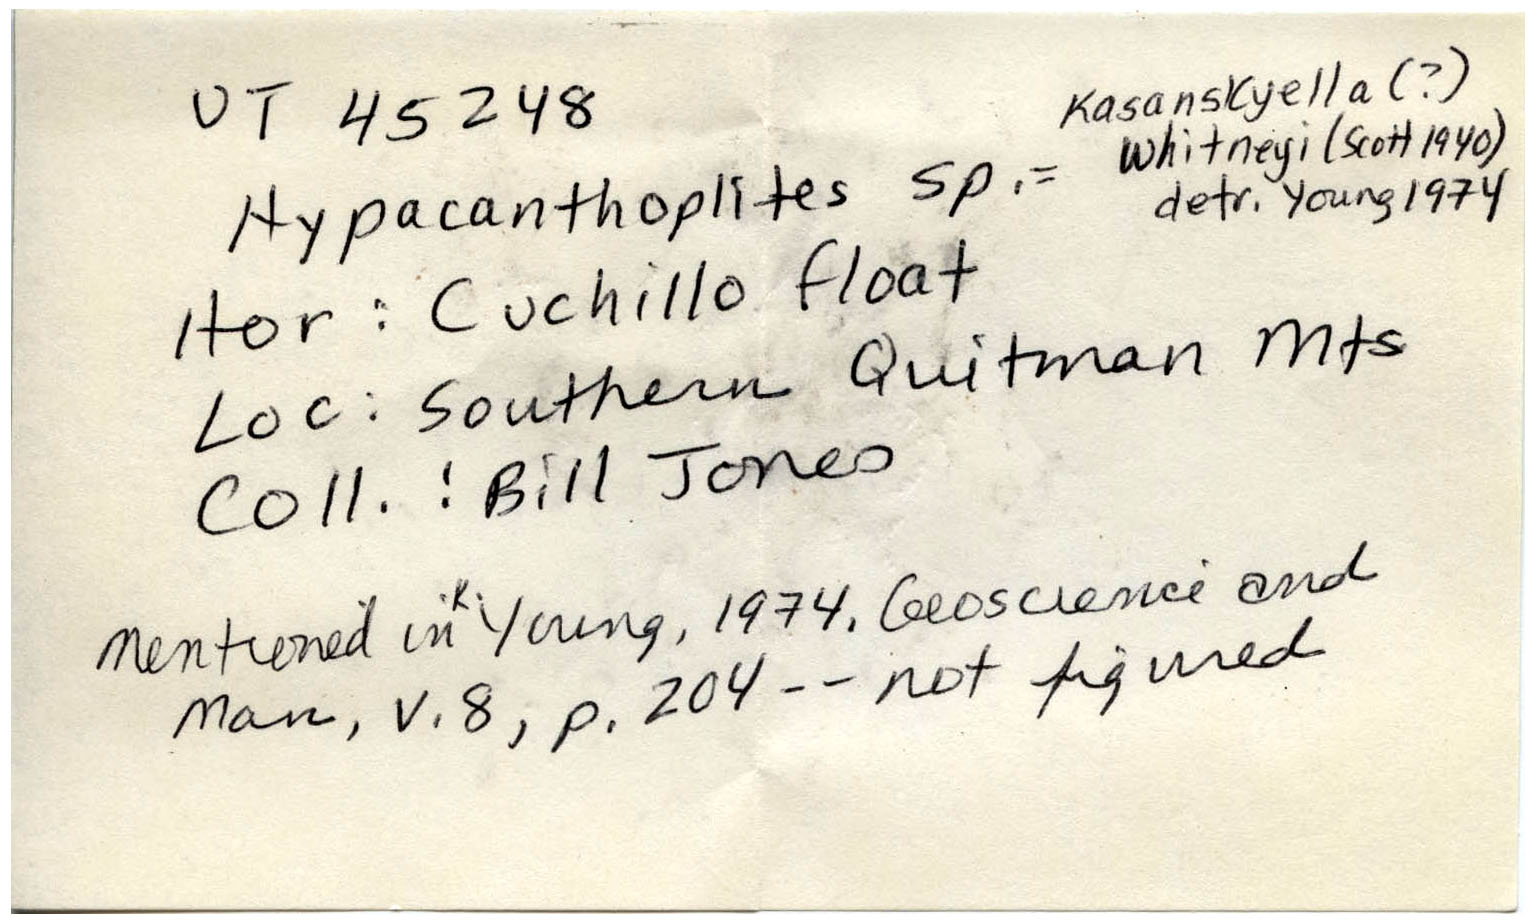 UT 45248
Hypacanthoplites sp. = Kasanskyella (?)
Whitneyi (Scott 1940)
detr. Young 1974
Hor: Cuchillo float
Loc: Southern Quitman Mts
Coll.: Bill Jones
Mentioned in K. Young, 1974. Geoscience and
Man, V. 8, p. 204 -- not figured